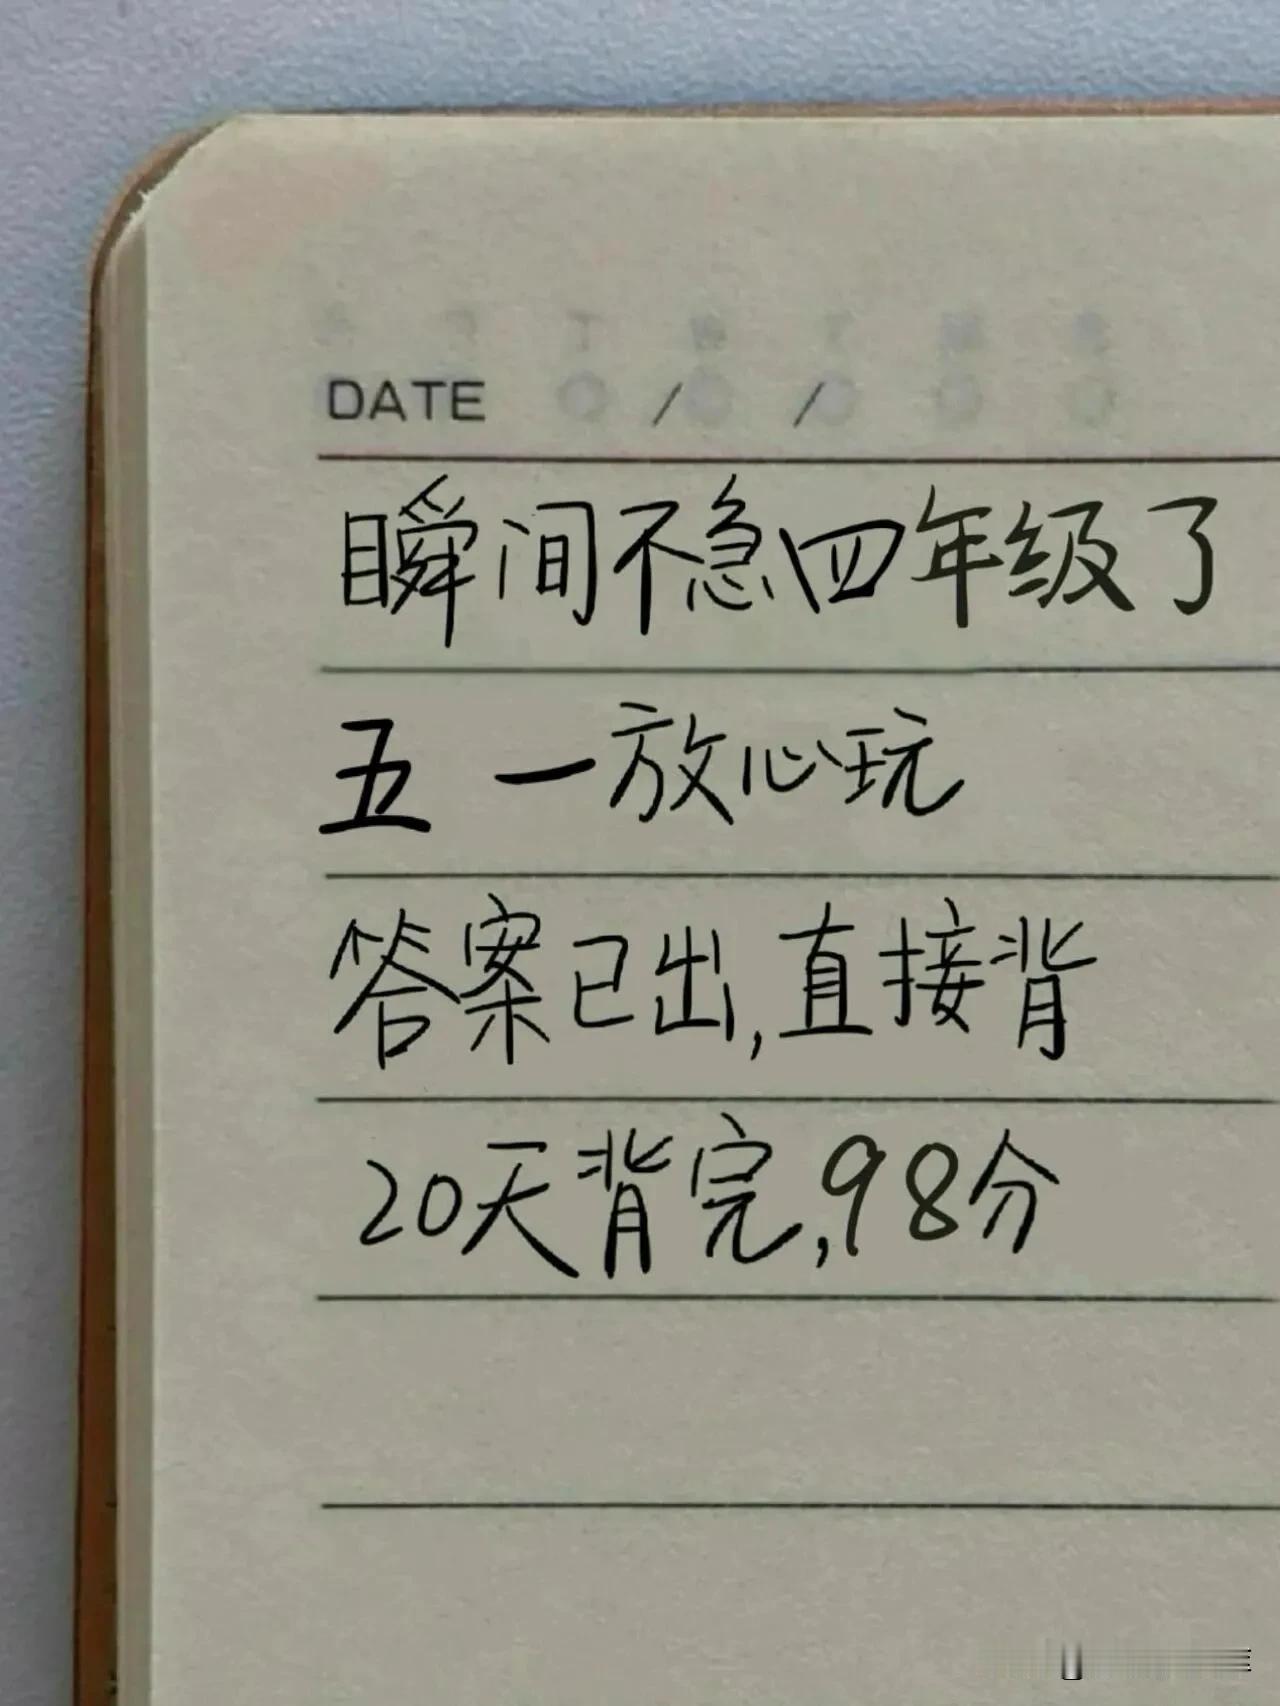 DATE / /
瞬间不急四年级了
五一放心玩
答案已出,直接背
20天背完,98分